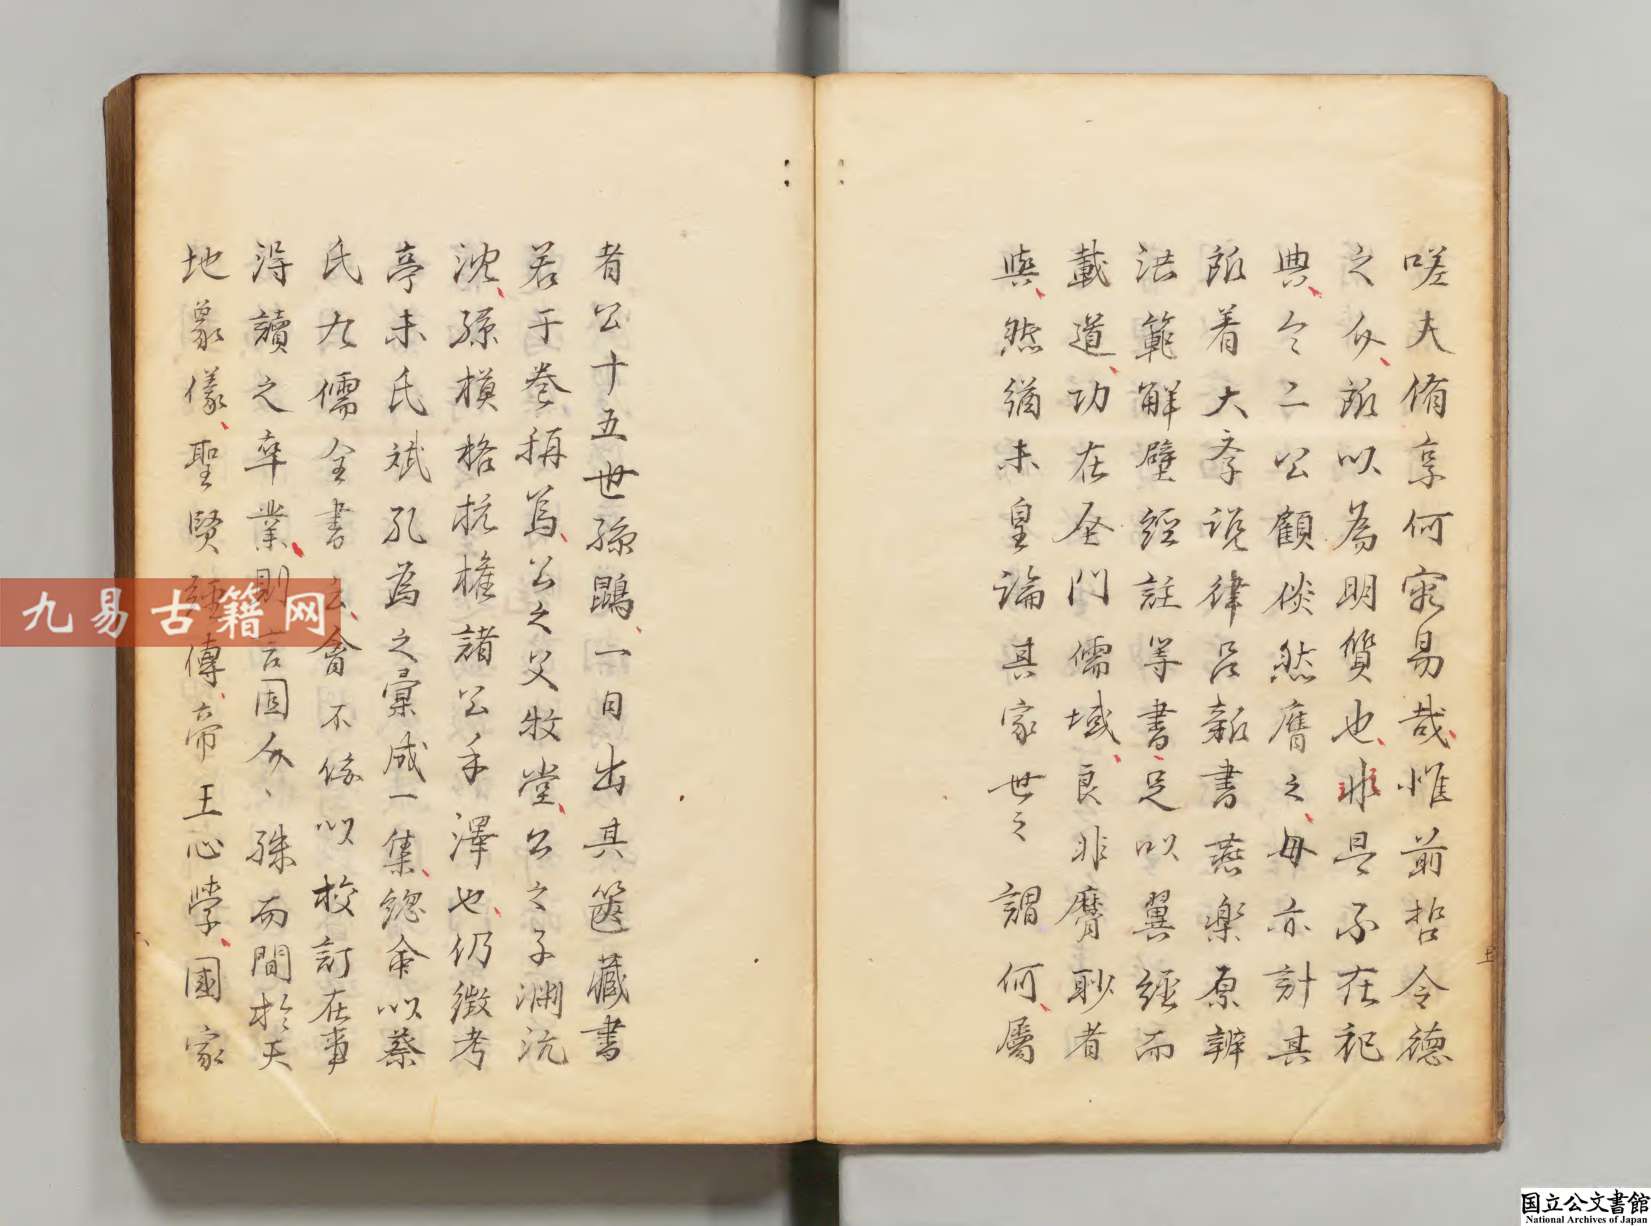 嗟夫脩享何容易哉惟前哲令德
之分所以為明質也非是不在祀
典今二公顧倐然膺之毋亦計其
所着大学说律吕新書燕樂原辨
洪範解壁經註等書足以翼經而
載道功在圣門儒域良非膺眇者
與然猶未皇論其家世之謂何属
者公十五世孫鵾一日出其箧藏書
若于卷稱為公之父牧堂公之子渊沆
沈孫模格杭權諸公手澤也仍徵考
亭朱氏斌孔為之彙成一集總命以蔡
氏九儒全書云畬不佞以校訂在事
得讀之卒業則言固人々殊而間扵天
地象儀聖賢經傳帝王心学國家
九易古籍网
国立公文書館
National Archives of Japan